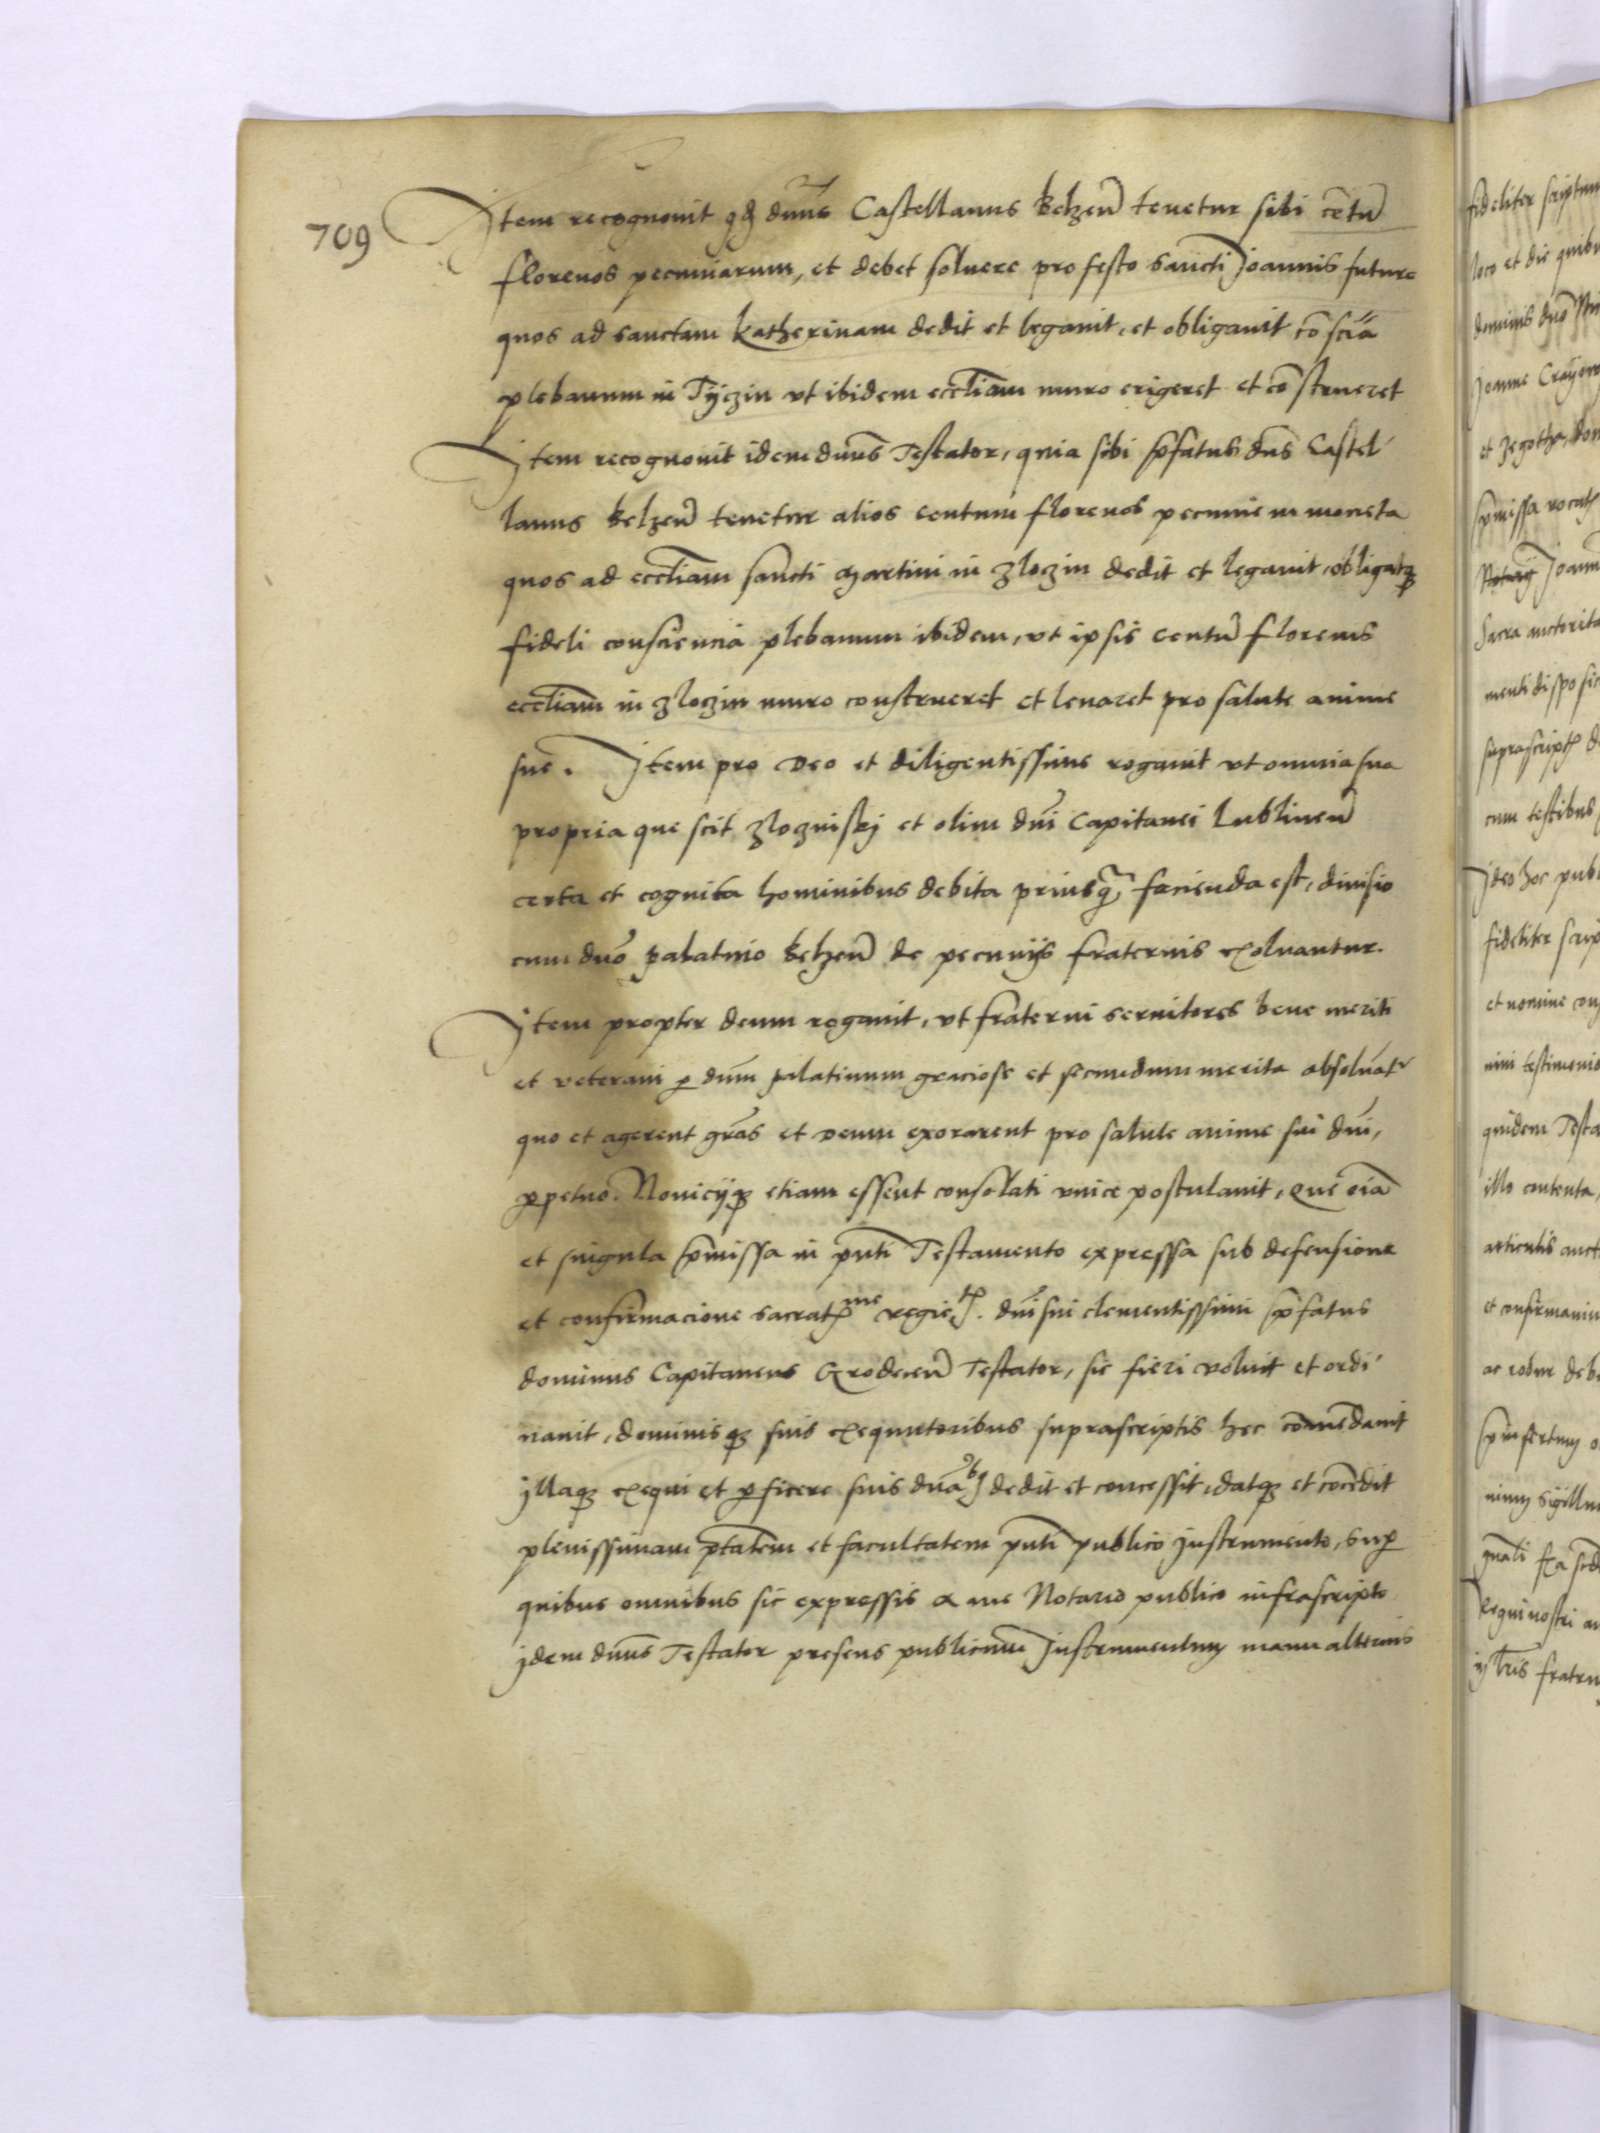 709
Item recognovit qd dnus Castellanus Belzen tenetur sibi centu
florenos pecuniarum, et debet solvere pro festo sancti Joannis future
quos ad sanctam Katherinam dedit et legavit, et obligavit co scia
plebanum in Tyczin vt ibidem eccliam muro erigeret et construeret
Item recognovit idem dnus Testator, quia sibi pfatus dns Castel
lanus Belzen tenetur alios centum florenos pecunie in moneta
quos ad eccliam sancti Martini in Zloczin dedit et legavit, obligatq
fideli consciencia plebanum ibidem, vt ipsis centu florenis
eccliam in Zloczin muro construeret et levaret pro salute anime
sue. Item pro Deo et diligentissime rogavit vt omnia sua
propria que scit Zloczniskj et olim dni Capitanei Lublinen
certa et cognita hominibus debita priusq facienda est, divisio
cum dno palatino Belzen de pecunijs fraternis exolvantur.
Item propter deum rogavit, vt fraterni servitores bene meriti
et veterani p dnm palatinum graciose et secundum merita absolvatr
quo et agerent gras et Deum exorarent pro salute anime sui dni,
ppetuo. Novicijq etiam essent consolati vnice postulavit, Que oia
et singula pmissa in pnti Testamento expressa sub defensione
et confirmacione sacratme regie M. dni sui clementissimi pfatus
dominus Capitaneus Grodecen Testator, sic fieri voluit et ordi
navit, dominisq suis exequutoribus suprascriptis hec comendavit
illaq exequi et pficere suis dnabus dedit et concessit, datq et concedit
plenissimam ptatem et facultatem pnti publico Instrumento, sup
quibus omnibus sic expressis a me Notario publico infrascripto
idem dnus Testator presens publicum Instrumentum manu alterius
fideliter scriptum
loco et die quibu
dominis dno
Joanne
et
pmissa vocat
Notarij Joann
sacra auctorita
menti disposic
suprascript d
cum testibus
Ideo hoc publ
fideliter scrip
et nomine con
nini testimonio
quidem Testa
illo contenta,
articulis auct
et confirmavim
ac robur deb
pinsertum o
nimy Sigillu
gnali
Regni nostri an
fratru